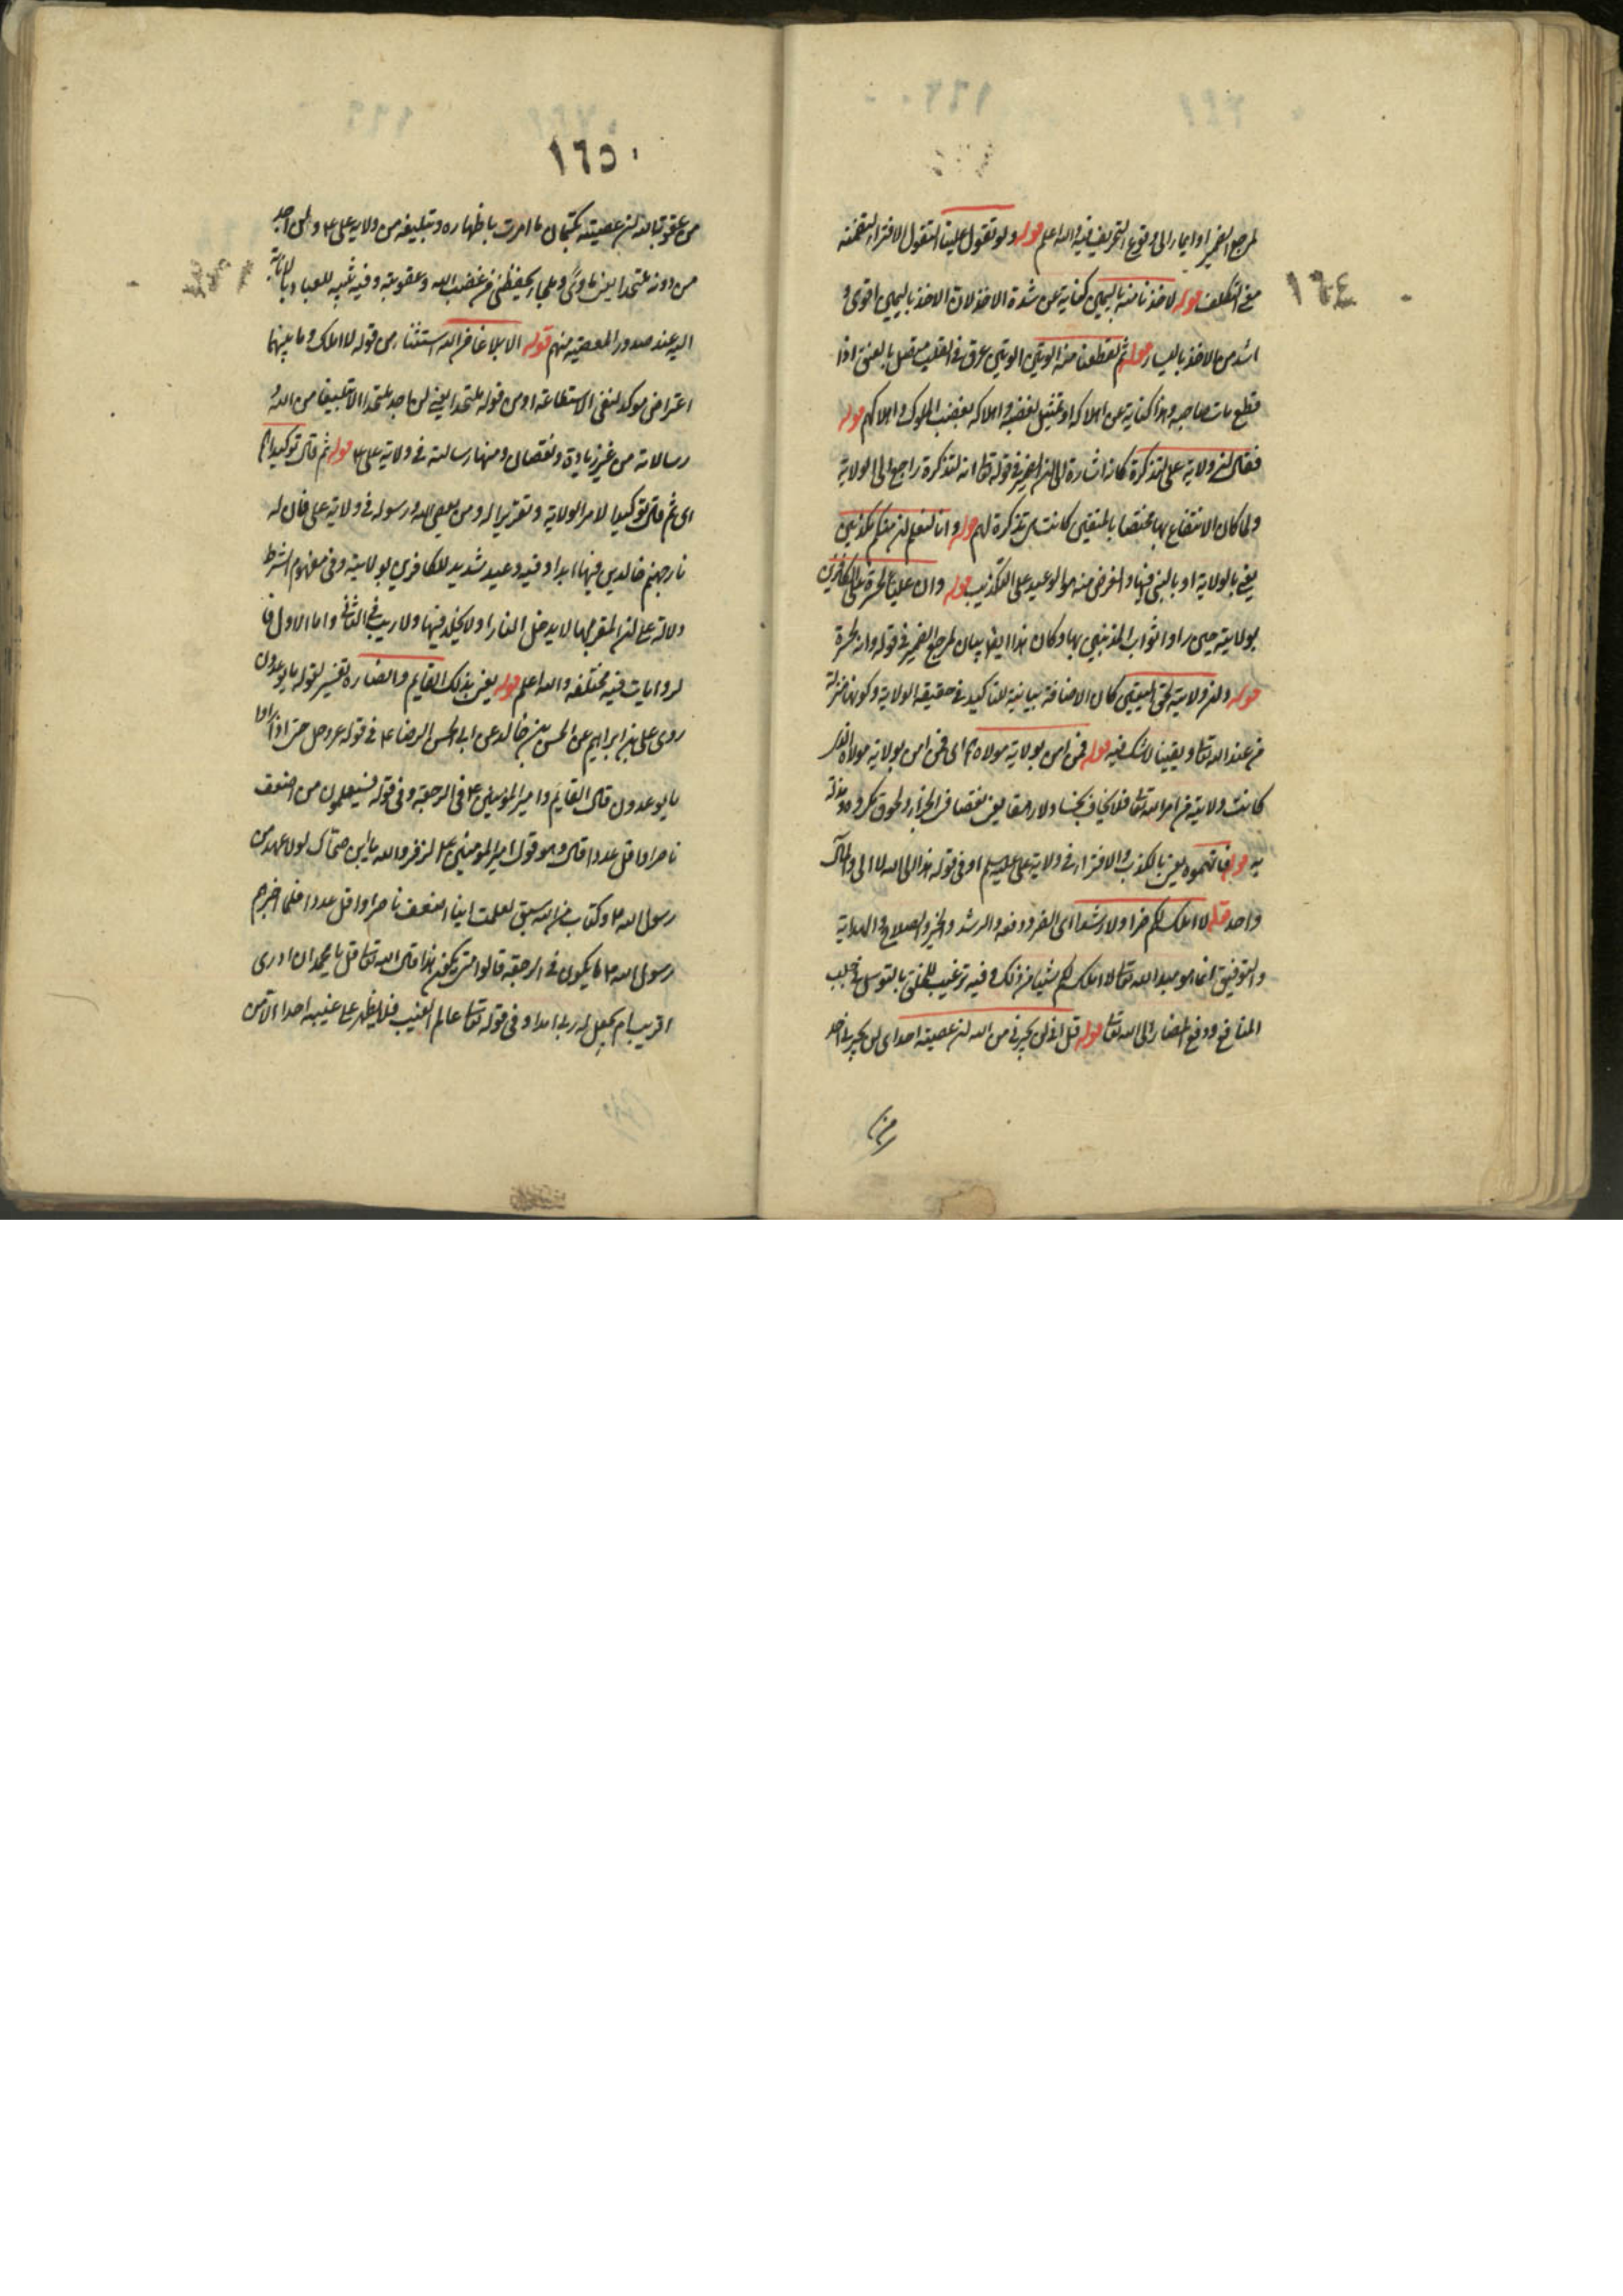 ١٦٤
لمرجع الضمير او ايماء الى وقوع التحريف فيه والله اعلم قوله ولو تقول علينا التقول الافتراء لتضمنه
معنى التكلف قوله لاخذنا منه باليمين كناية عن شدة الاخذ لان الاخذ باليمين اقوى و
اشد من الاخذ باليسار قوله ثم لقطعنا منه الوتين الوتين عرق في القلب متصل بالعنق اذا
قطع مات صاحبه وهذا كناية عن اهلاكه او تمثيل لغضبه واهلاكه بغضب الملوك واهلاكهم قوله
فقال ان ولاية على لتذكرة كانه اشارة الى ان الضمير في قوله تعالى انه لتذكرة راجع الى الولاية
ولما كان الانتفاع بها مختصا بالمتقين كانت تذكرة لهم قوله وانا لنعلم ان منكم مكذبين
يعني بالولاية او بالنبي فيها والغرض منه هو الوعيد على التكذيب قوله وان عليا لحسرة على الكافرين
بولايته حين راوا ثواب المذنبين بها وكان هذا ايضا بيان لمرجع الضمير في قوله وانه لحسرة
قوله وان ولايته لحق اليقين كان الاضافة بيانية للتاكيد في حقيقة الولاية وكونها منزلة
من عند الله تعالى ويقينا لا شك فيه قوله فمن امن بولاية مولاه اى فمن امن بولاية مولاه الذى
كانت ولايته من امر الله تعالى فلا يخاف بخسا ولا رهقا يعنى نقصا في الجزاء ولحوق مكروه ومذلة
به قوله فاتهموه يعنى بالكذب والافتراء في ولاية على عليه السلم او في قوله هذا الى الله لا الى والمآل
واحد قوله لا املك لكم ضرا ولا رشدا اى الضر ودفعه والرشد والخير والصلاح والهداية
والتوفيق انما هو بيد الله تعالى لا املك لكم شيئا من ذلك وفيه ترغيب للخلق بالتوسل في جلب
المنافع ودفع المضار الى الله تعالى قوله قل انى لن يجيرنى من الله ان عصيته احد اى لن يجيرنى احد
من
١٦٥
من عقوبة الله ان عصيته بكتمان ما امرت باظهاره وتبليغه من ولاية على ع ولن اجد
من دونه ملتحدا يعنى ماوى وملجأ يحفظنى من غضب الله وعقوبته وفيه تنبيه للعباد بالانابة
اليه عند صدور المعصية منهم قوله الا بلاغا من الله استثناء من قوله لا املك وما بينهما
اعتراض موكد لنفى الاستطاعة او من قوله ملتحدا يعنى لن اجد ملتحدا الا تبليغا من الله و
رسالاته من غير زيادة ونقصان ومنها رسالته في ولاية على ع قوله ثم قال توكيدا
اى ثم قال توكيدا لامر الولاية وتقريرا له ومن يعص الله ورسوله في ولاية على فان له
نار جهنم خالدين فيها ابدا وفيه وعيد شديد للكافرين بولايته وفى مفهوم الشرط
دلالة على ان المقر بها لا يدخل النار او لا يخلد فيها ولا ريب في الثانى واما الاول فا
لروايات فيه مختلفة والله اعلم قوله يعنى بذلك القايم وانصاره تفسير لقوله ما يوعدون
روى على بن ابراهيم عن الحسين بن خالد عن ابى الحسن الرضا ع في قوله عز وجل حتى اذا راوا
ما يوعدون قال القايم وامير المؤمنين ع فى الرجعة وفى قوله فسيعلمون من اضعف
ناصرا واقل عددا قال وهو قول امير المؤمنين ع لزفر والله يا ابن صهاك لولا عهد من
رسول الله ص وكتاب من الله سبق لعلمت اينا اضعف ناصرا واقل عددا فلما اخبرهم
رسول الله ص ما يكون في الرجعة قالوا متى يكون هذا قال الله تعالى قل يا محمد ان ادرى
اقريب ام يجعل له ربى امدا وفى قوله تعالى عالم الغيب فلا يظهر على غيبه احدا الا من